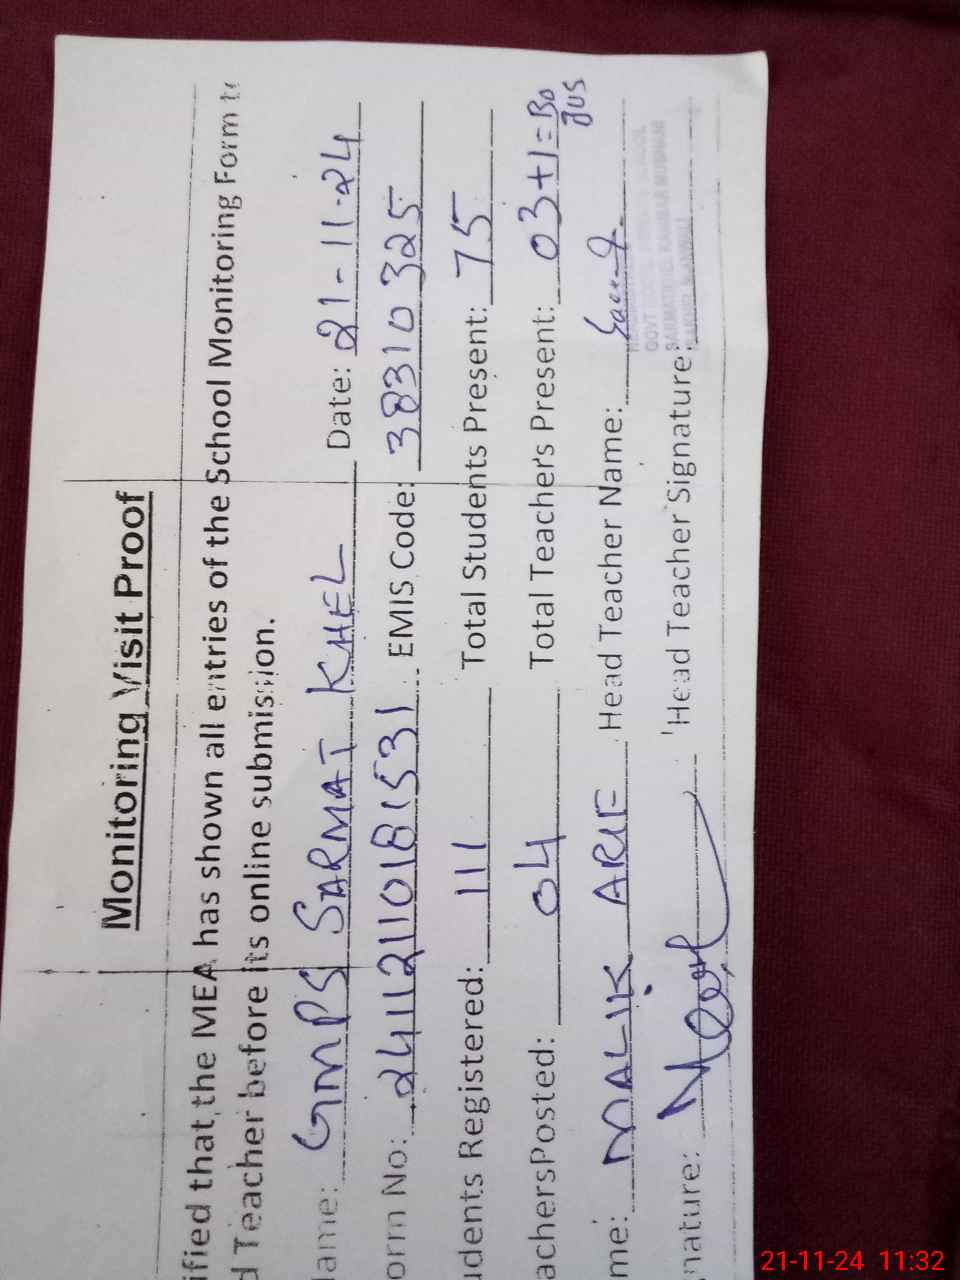 Monitoring Visit Proof
ified that the MEA has shown all entries of the School Monitoring Form to
d Teacher before its online submission.
lame: GMPS SARMAT KHEL Date: 21-11-24
orm No: 24112110181531 EMIS Code: 38310325
udents Registered: 111 Total Students Present: 75
achersPosted: 04 Total Teachers Present: 03+1=Bo
gus
me: MALIK ARIF Head Teacher Name:
nature: Head Teacher Signature:
21-11-24 11:32